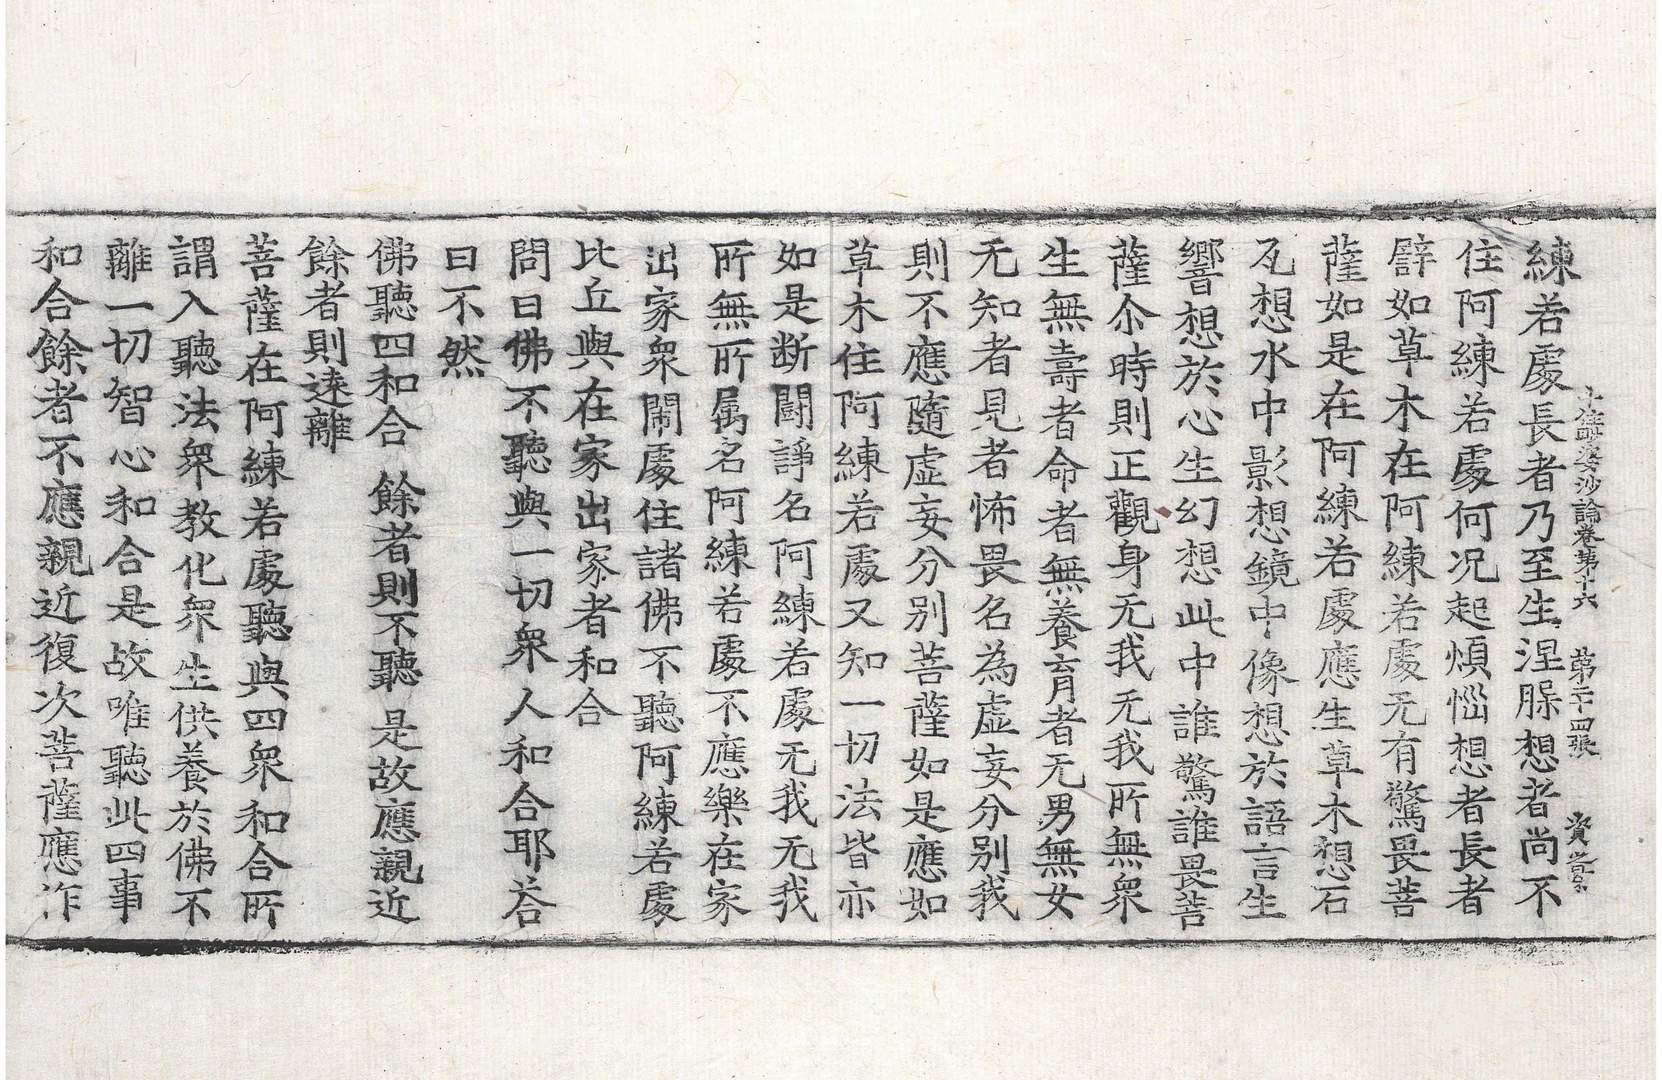 十住毗婆沙論卷第十六　第二十四張　賓
練若處長者乃至生涅脲想者尚不
住阿練若處何况起煩惱想者長者
譬如草木在阿練若處无有驚畏菩
薩如是在阿練若處應生草木想石
瓦想水中影想鏡中像想於語言生
響想於心生幻想此中誰驚誰畏菩
薩尒時則正觀身无我无我所無衆
生無壽者命者無養育者无男無女
无知者見者怖畏名為虛妄分別我
則不應隨虛妄分別菩薩如是應如
草木住阿練若處又知一切法皆亦
如是断鬪諍名阿練若處无我无我
所無所属名阿練若處不應樂在家
出家衆閙處住諸佛不聽阿練若處
比丘與在家出家者和合
問曰佛不聽與一切衆人和合耶荅
曰不然
佛聽四和合　餘者則不聽　是故應親近
餘者則遠離
菩薩在阿練若處聽與四衆和合所
謂入聽法衆教化衆生供養於佛不
離一切智心和合是故唯聽此四事
和合餘者不應親近復次菩薩應作